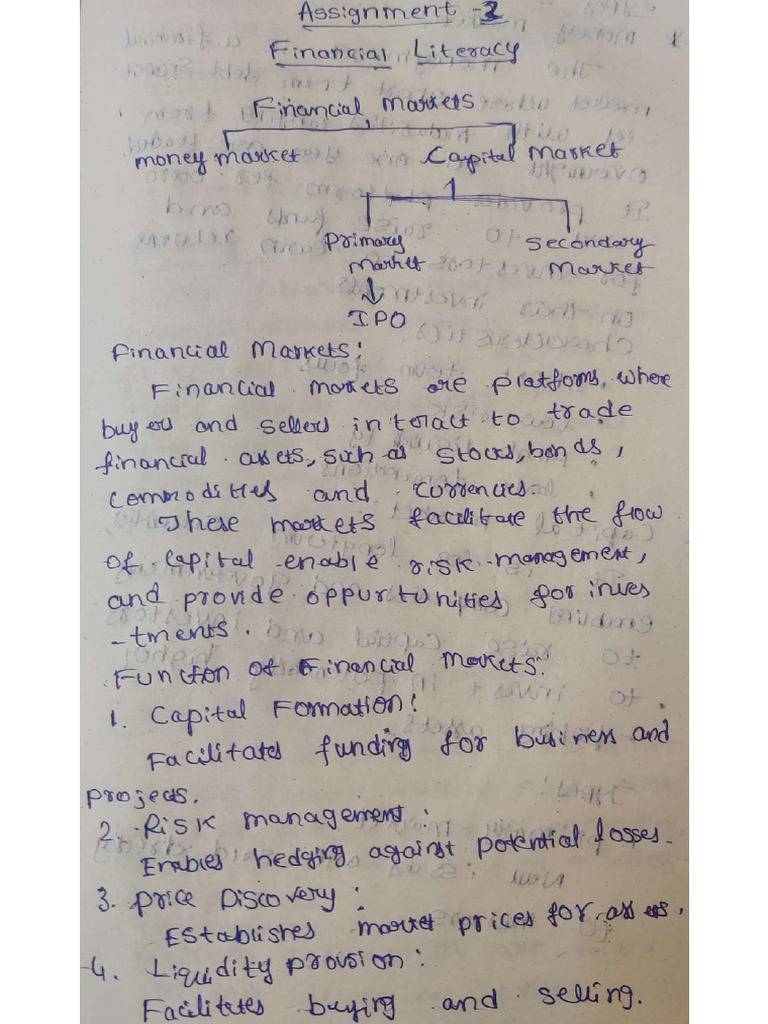 Assignment - 2
Financial Literacy
Financial Markets
money market Capital Market
Primary Secondary
Market Market
IPO
Financial Markets:
Financial markets are platforms, where
buyers and sellers interact to trade
financial assets, such as stocks, bonds,
commodities and currencies.
These markets facilitate the flow
of capital enable risk management,
and provide oppurtunities for inves
-tments.
Functon of Financial Markets:
1. Capital Formation:
Facilitates funding for business and
projects.
2. Risk management:
Enables hedging against potential losses.
3. Price Discovery:
Establishes market prices for assets.
4. Liquidity provision:
Facilitates buying and selling.